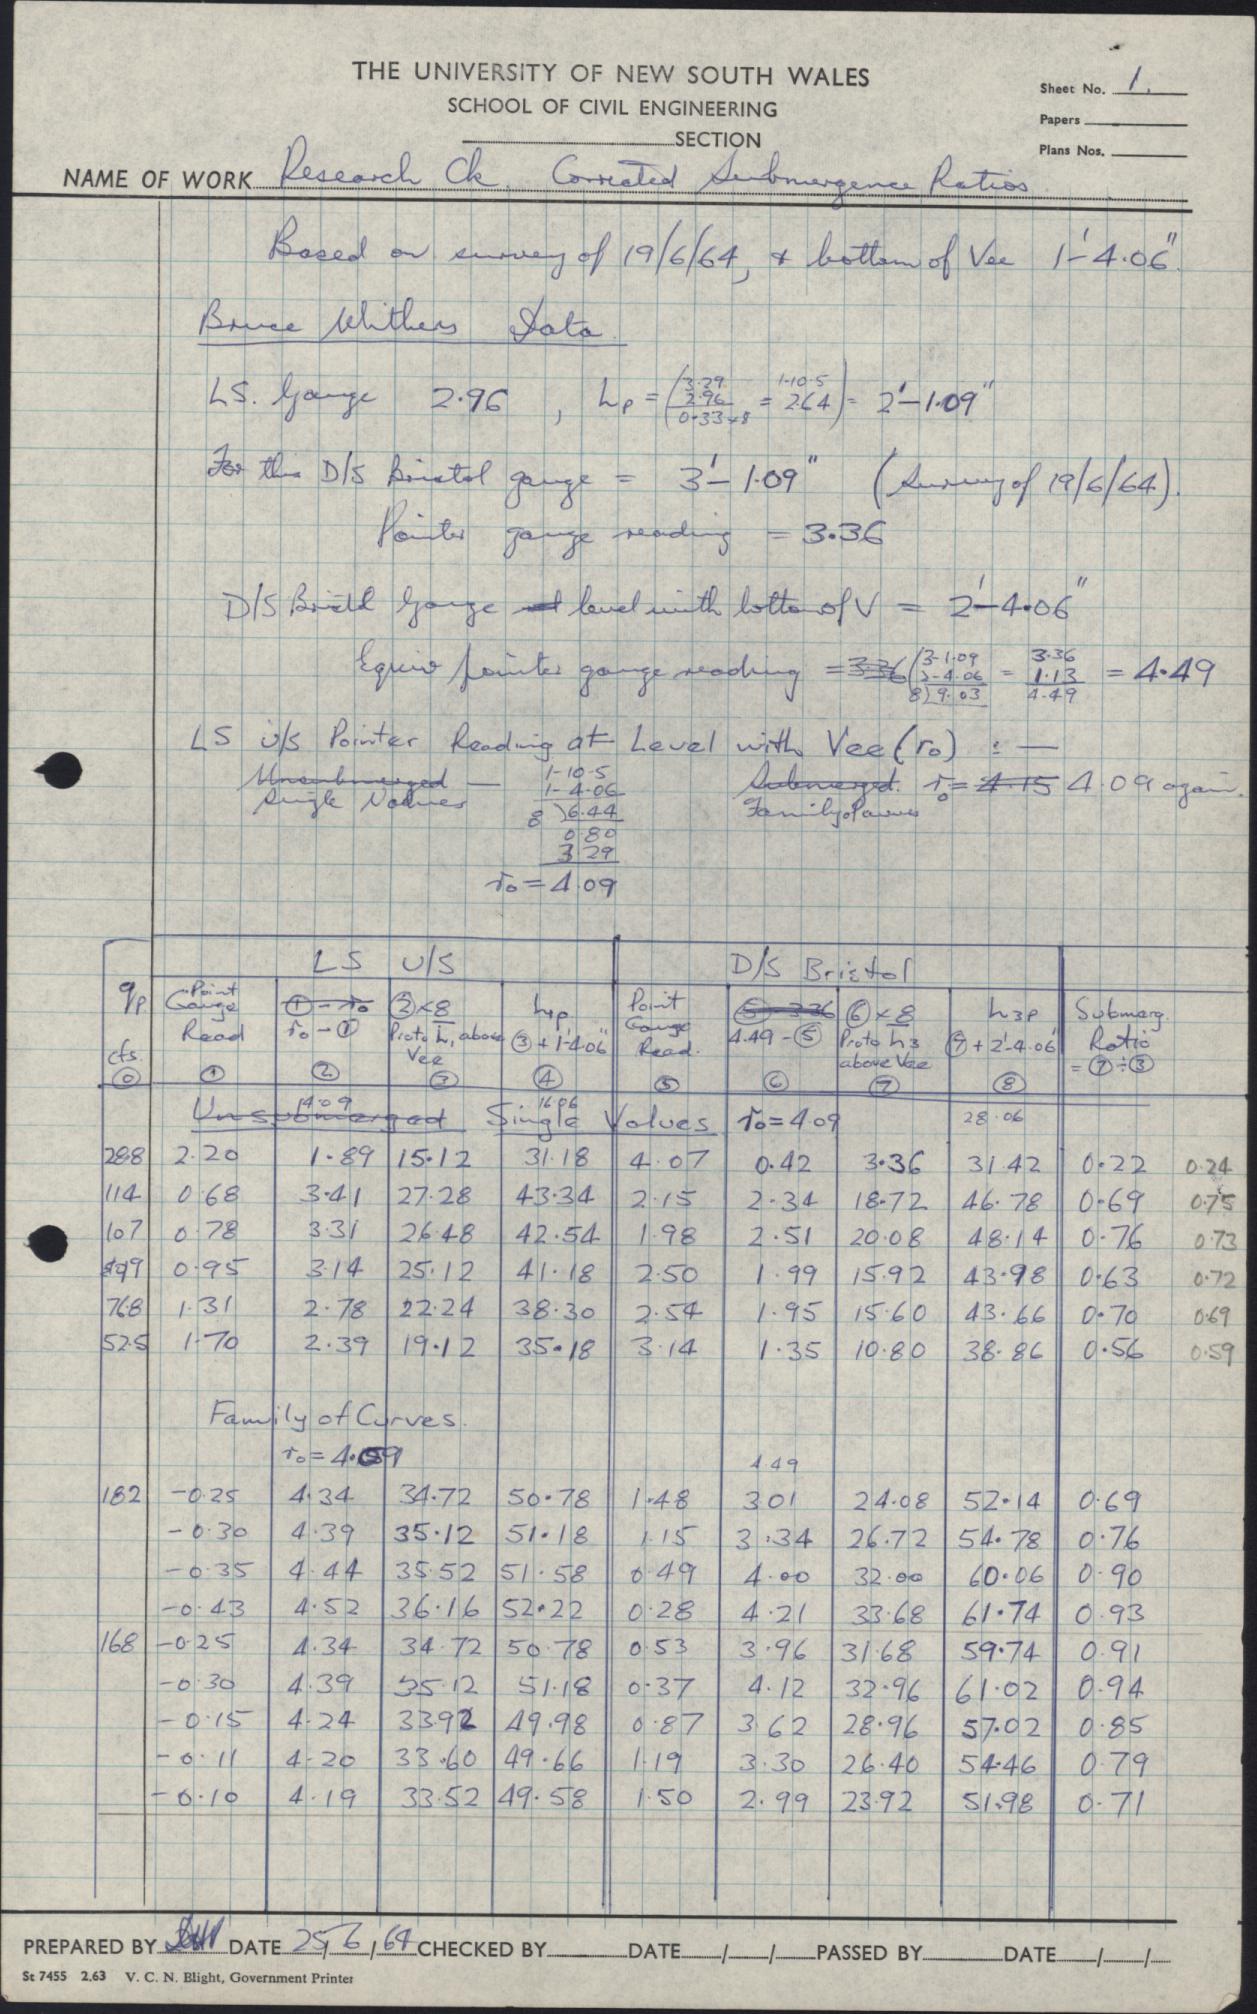 THE UNIVERSITY OF NEW SOUTH WALES
SCHOOL OF CIVIL ENGINEERING
SECTION
Sheet No. 1.
Papers
Plans Nos.
NAME OF WORK Research Ck. Corrected Submergence Ratios
Based on survey of 19/6/64, & bottom of Vee 1'-4.06".
Bruce Withers Data.
LS. Gauge 2.96 , hp = (3.29 2.96 0.33 x 8 = 1-10.5 2.64) = 2'-1.09"
For this D/S Bristol gauge = 3'-1.09" (Survey of 19/6/64).
Pointer gauge reading = 3.36
D/S Bristol Gauge level with bottom of V = 2'-4.06"
Equiv pointer gauge reading = 3.36 (3-1.09 2-4.06 8)9.03 = 3.36 1.13 4.49 = 4.49
LS U/S Pointer Reading at Level with Vee (ro) : —
Unsubmerged — 1-10.5 Submerged. ro = 4.15 4.09 again.
Single Values 1-4.06 Family of curves
8 )6.44
0.80
3.29
ro = 4.09
LS U/S D/S Bristol
qp cfs. ⓪
Point Gauge Read ①
① - ro ro - ① ②
② x 8 Proto h1 above Vee ③
h1p ③ + 1'-4.06" ④
Point Gauge Read. ⑤
⑤ - 3.36 4.49 - ⑤ ⑥
⑥ x 8 Proto h3 above Vee ⑦
h3p ⑦ + 2'-4.06" ⑧
Submerg. Ratio = ⑦ ÷ ③
4.09 16.06 28.06
Unsubmerged Single Values ro = 4.09
288 2.20 1.89 15.12 31.18 4.07 0.42 3.36 31.42 0.22 0.24
114 0.68 3.41 27.28 43.34 2.15 2.34 18.72 46.78 0.69 0.75
107 0.78 3.31 26.48 42.54 1.98 2.51 20.08 48.14 0.76 0.73
99 0.95 3.14 25.12 41.18 2.50 1.99 15.92 43.98 0.63 0.72
76.8 1.31 2.78 22.24 38.30 2.54 1.95 15.60 43.66 0.70 0.69
52.5 1.70 2.39 19.12 35.18 3.14 1.35 10.80 38.86 0.56 0.59
Family of Curves.
ro = 4.09 4.49
182 -0.25 4.34 34.72 50.78 1.48 3.01 24.08 52.14 0.69
-0.30 4.39 35.12 51.18 1.15 3.34 26.72 54.78 0.76
-0.35 4.44 35.52 51.58 0.49 4.00 32.00 60.06 0.90
-0.43 4.52 36.16 52.22 0.28 4.21 33.68 61.74 0.93
168 -0.25 4.34 34.72 50.78 0.53 3.96 31.68 59.74 0.91
-0.30 4.39 35.12 51.18 0.37 4.12 32.96 61.02 0.94
-0.15 4.24 33.92 49.98 0.87 3.62 28.96 57.02 0.85
-0.11 4.20 33.60 49.66 1.19 3.30 26.40 54.46 0.79
-0.10 4.19 33.52 49.58 1.50 2.99 23.92 51.98 0.71
PREPARED BY DATE 25/6/64 CHECKED BY DATE / / PASSED BY DATE / /
St 7455 2.63 V. C. N. Blight, Government Printer